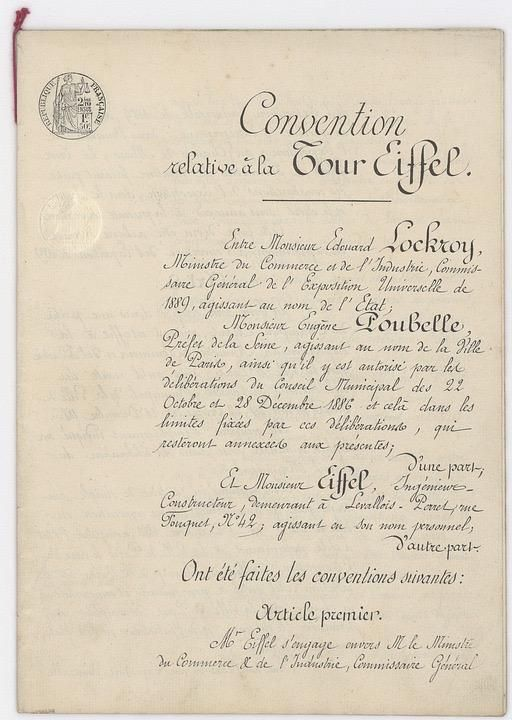 RÉPUBLIQUE FRANÇAISE
Convention
relative à la Tour Eiffel.
Entre Monsieur Edouard Lockroy,
Ministre du Commerce et de l'Industrie, Commis-
saire Général de l'Exposition Universelle de
1889, agissant au nom de l'Etat;
Monsieur Eugène Poubelle,
Préfet de la Seine, agissant au nom de la Ville
de Paris, ainsi qu'il y est autorisé par les
délibérations du Conseil Municipal des 22
Octobre et 28 Décembre 1886 et celà dans les
limites fixées par ces délibérations, qui
resteront annexées aux présentes;
D'une part;
Et Monsieur Eiffel, Ingénieur-
Constructeur, demeurant à Levallois-Perret, rue
Fouquet, N° 42; agissant en son nom personnel;
D'autre part.
Ont été faites les conventions suivantes:
Article premier.
Mr Eiffel s'engage envers M. le Ministre
du Commerce & de l'Industrie, Commissaire Général